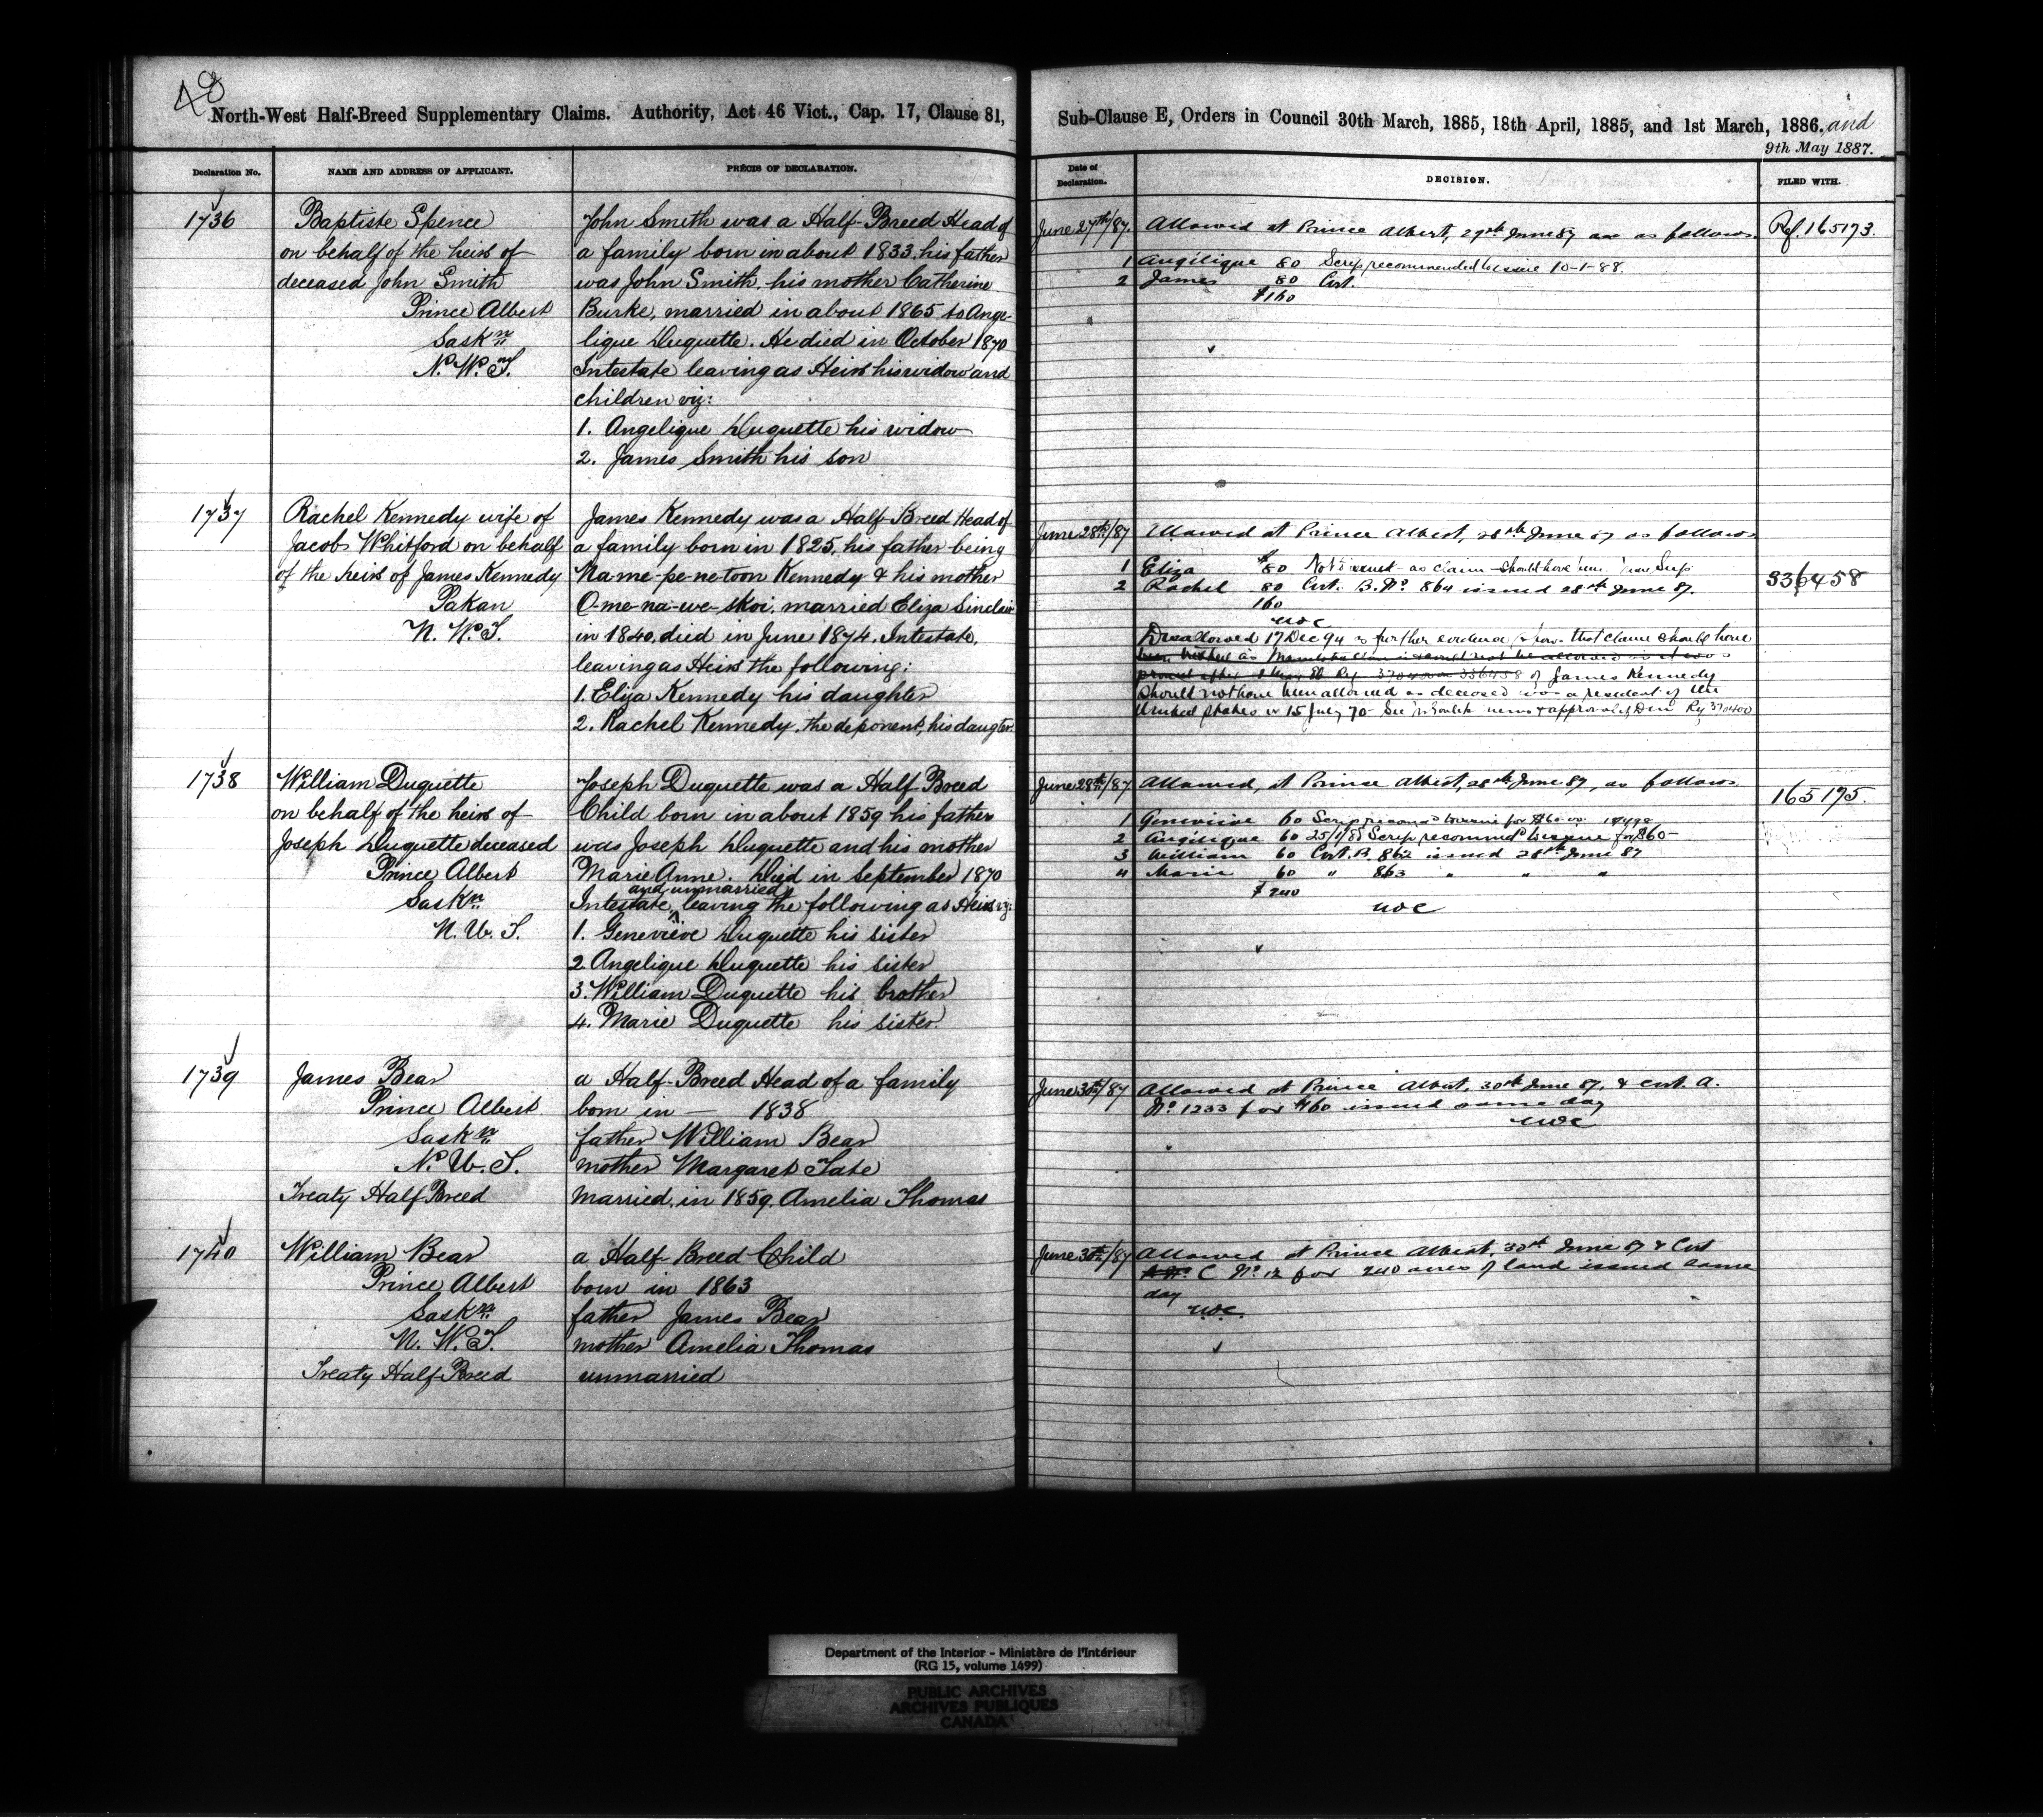 48
North-West Half-Breed Supplementary Claims. Authority, Act 46 Vict., Cap. 17, Clause 81,
Declaration No.
NAME AND ADDRESS OF APPLICANT.
PRÉCIS OF DECLARATION.
1736
Baptiste Spence
on behalf of the heirs of
deceased John Smith
Prince Albert
Saskn
N. W. T.
John Smith was a Half-Breed Head of
a family born in about 1833, his father
was John Smith, his mother Catherine
Burke, married in about 1865 to Ange-
lique Duquette. He died in October 1870
Intestate leaving as Heirs his widow and
children viz:
1. Angelique Duquette his widow
2. James Smith his son
1737
Rachel Kennedy wife of
Jacob Whitford on behalf
of the heirs of James Kennedy
Pakan
N. W. T.
James Kennedy was a Half Breed Head of
a family born in 1825, his father being
Na-me-pe-ne-toon Kennedy & his mother
O-me-na-we-skoi, married Eliza Sinclair
in 1840, died in June 1874. Intestate,
leaving as Heirs the following:
1. Eliza Kennedy his daughter
2. Rachel Kennedy, the deponent, his daugter
1738
William Duquette
on behalf of the heirs of
Joseph Duquette deceased
Prince Albert
Saskn
N. W. T.
Joseph Duquette was a Half Breed
Child born in about 1859 his father
was Joseph Duquette and his mother
Marie Anne. Died in September 1870
and unmarried
Intestate, leaving the following as Heirs viz:
1. Genevieve Duquette his sister
2. Angelique Duquette his sister
3. William Duquette his brother
4. Marie Duquette his sister
1739
James Bear
Prince Albert
Saskn
N. W. T.
Treaty Half Breed
a Half-Breed Head of a family
born in — 1838
father William Bear
mother Margaret Tate
married in 1859. Amelia Thomas
1740
William Bear
Prince Albert
Saskn
N. W. T.
Treaty Half Breed
a Half Breed Child
born in 1863
father James Bear
mother Amelia Thomas
unmarried
Sub-Clause E, Orders in Council 30th March, 1885, 18th April, 1885, and 1st March, 1886, and
9th May 1887.
Date of
Declaration.
DECISION.
FILED WITH.
June 27th/87.
Allowed at Prince Albert, 27th June 87 as follows
1 Angélique 80 Scrip recommended to issue 10-1-88.
2 James 80 Cert.
$160
Ref. 165173.
June 28th/87
Allowed at Prince Albert, 28th June 87 as follows
1 Eliza $80 Not issued as claim should have been
2 Rachel 80 Cert. B. No 864 issued 28th June 87.
160
Disallowed 17 Dec 94 as further evidence shows that claim should have
of James Kennedy
should not have been allowed as deceased was a resident of the
United States on 15 July 70
336458
June 28th/87
Allowed, at Prince Albert, 28th June 87, as follows
1 Geneviève 60 Scrip to issue for $60
2 Angélique 60 25/1/88 Scrip recommd to issue for $60-
3 William 60 Cert. B. 862 issued 28th June 87
4 Marie 60 " 863 " " "
$240
165175.
June 30th/87
Allowed at Prince Albert, 30th June 87, & Cert. A.
No 1233 for $160 issued same day
June 30th/87
Allowed at Prince Albert, 30th June 87 & Cert
C No 12 for 240 acres of land issued same
day
Department of the Interior - Ministère de l'Intérieur
(RG 15, volume 1499)
PUBLIC ARCHIVES
ARCHIVES PUBLIQUES
CANADA